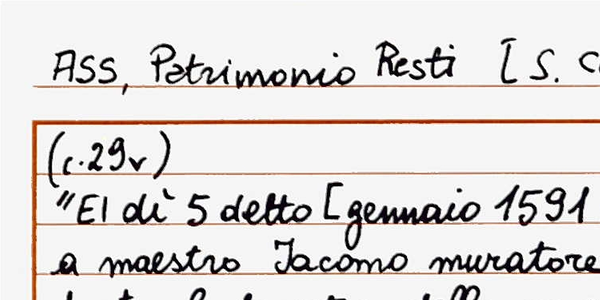 ASS, Patrimonio Resti [S. C
(c.29v)
"El dì 5 detto [gennaio 1591
a maestro Jacomo muratore